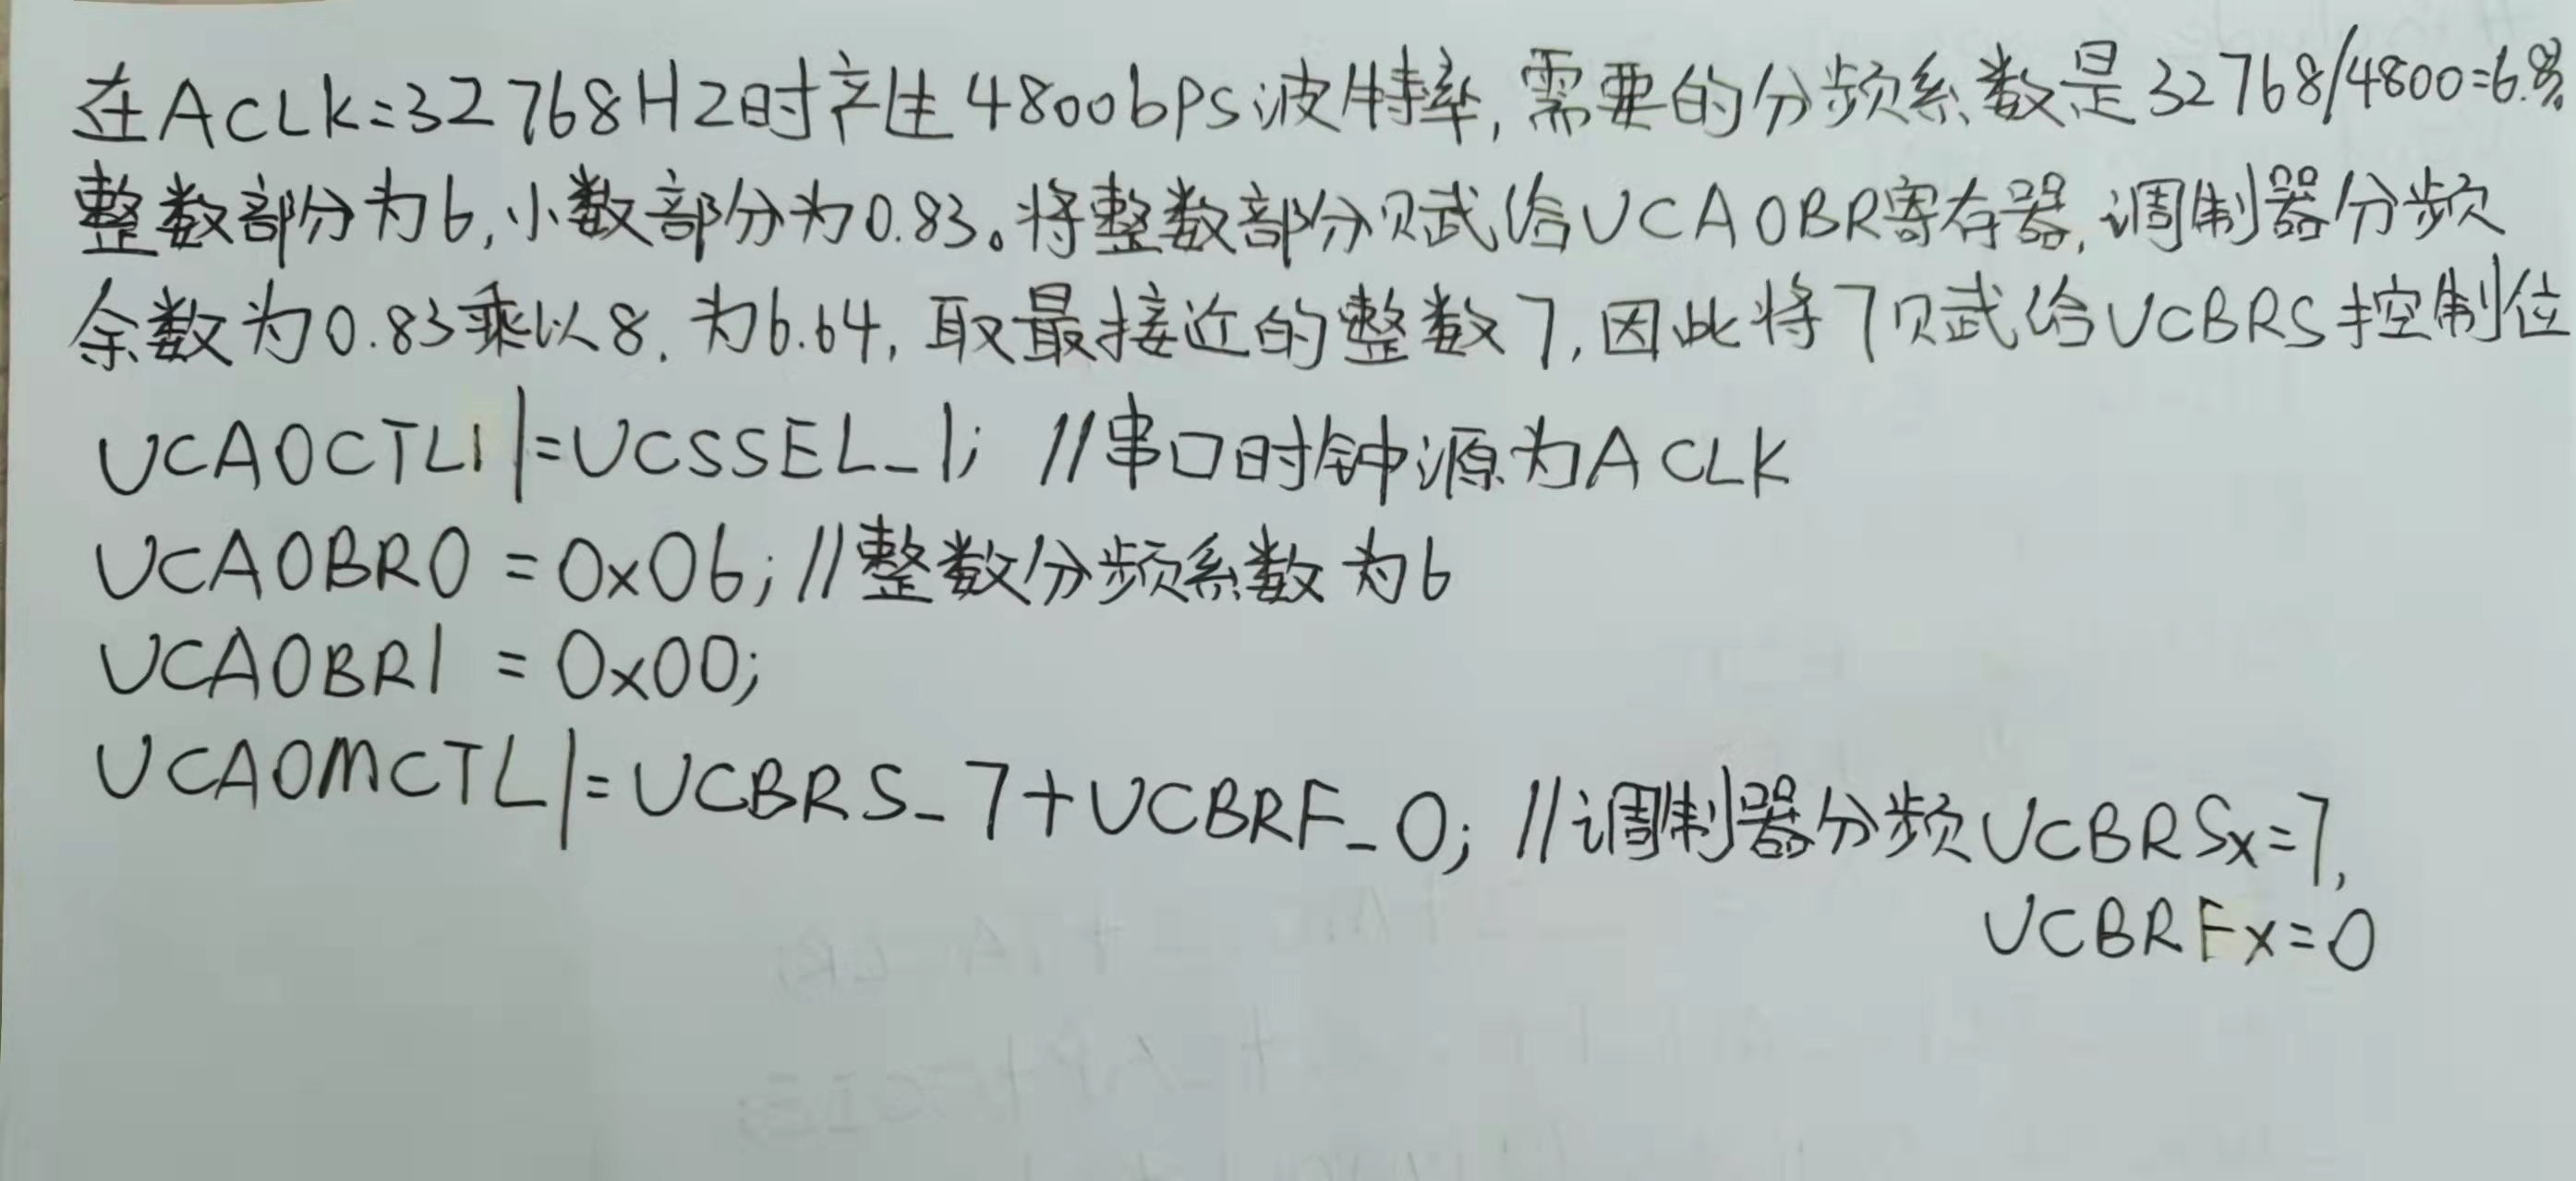 在ACLK=32768HZ时产生4800bps波特率,需要的分频系数是32768/4800=6.83,
整数部分为6,小数部分为0.83。将整数部分赋给UCA0BR寄存器,调制器分频
余数为0.83乘以8,为6.64,取最接近的整数7,因此将7赋给UCBRS控制位
UCA0CTL1|=UCSSEL_1; //串口时钟源为ACLK
UCA0BR0 = 0x06; //整数分频系数为6
UCA0BR1 = 0x00;
UCA0MCTL|=UCBRS_7+UCBRF_0; //调制器分频UCBRSx=7,
UCBRFx=0